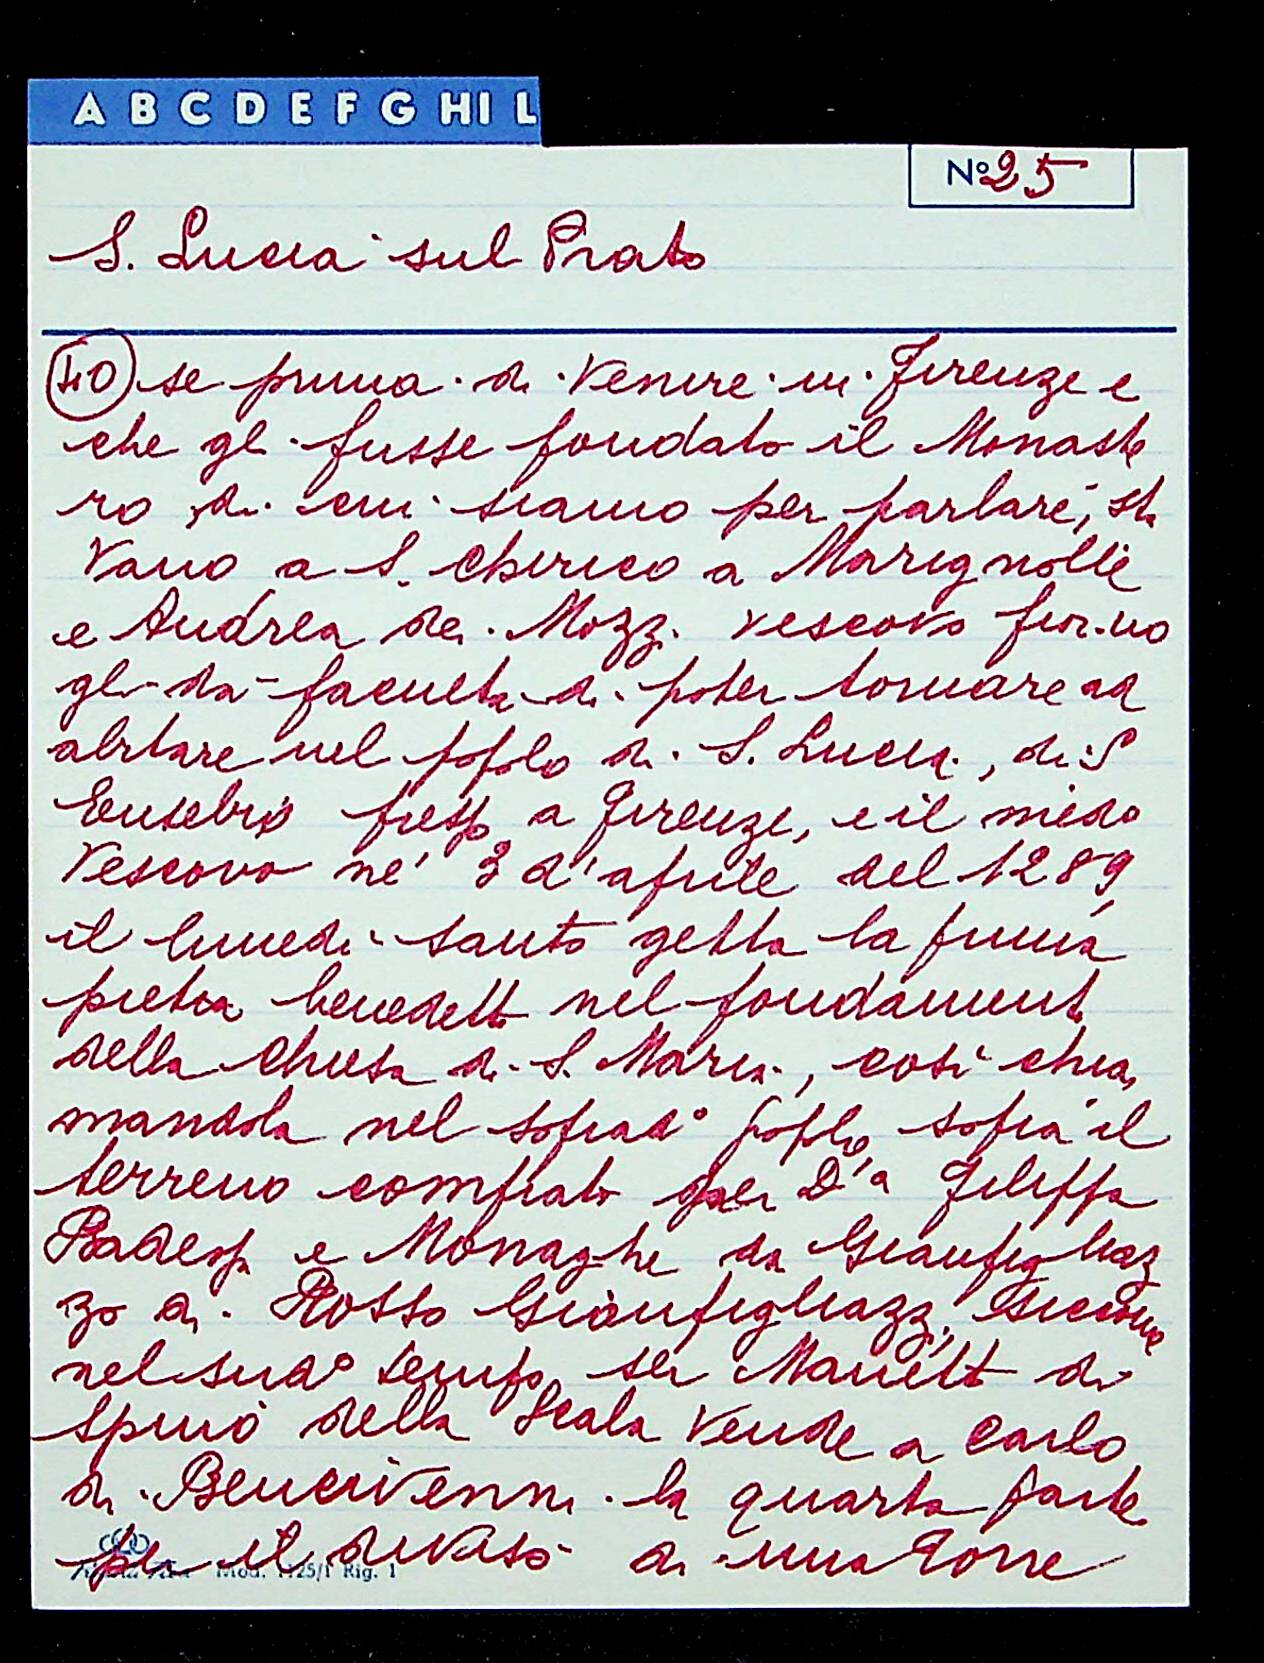 A B C D E F G HI L
Nº 25
S. Lucia sul Prato
40 se prima di venire in Firenze e
che gli fusse fondato il Monaste
ro di cui siamo per parlare, sta
vano a S. Chirico a Marignolle
e Andrea de Mozzi vescovo fior.no
gli da facultà di poter tornare ad
abitare nel popolo di S. Lucia, di S
Eusebio presso a Firenze, e il medo
Vescovo ne' 3 d'aprile del 1289,
il lunedi santo getta la prima
pietra benedetta nel fondamento
della Chiesa di S. Maria, così chia
mandola nel soprad° popolo, sopra il
terreno comprato per D'a Filippa
Badessa e Monaghe da Gianfigliaz
zo di Rosso Gianfigliazzi, siccome
nel sud° tempo ser Manetto di
Spina della Scala vende a Carlo
di Bencivenni la quarta parte
per il diviso di una Torre
Mod. 1125/1 Rig. 1